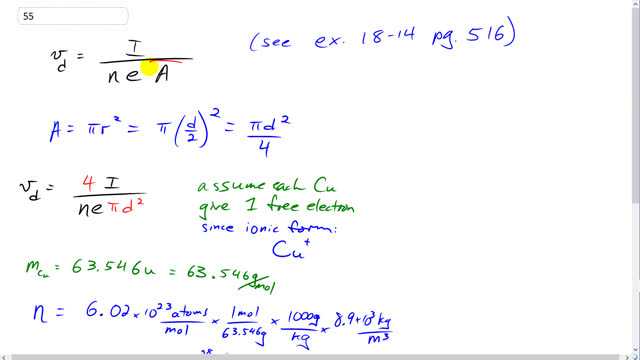 55
v_d = I / n e A (see ex. 18-14 pg. 516)
A = πr² = π(d/2)² = πd²/4
v_d = 4 I / n e π d²
assume each Cu
give 1 free electron
since ionic form:
Cu⁺
m_Cu = 63.546u = 63.546 g/mol
n = 6.02 × 10²³ atoms/mol × 1mol/63.546g × 1000g/kg × 8.9×10³ kg/m³